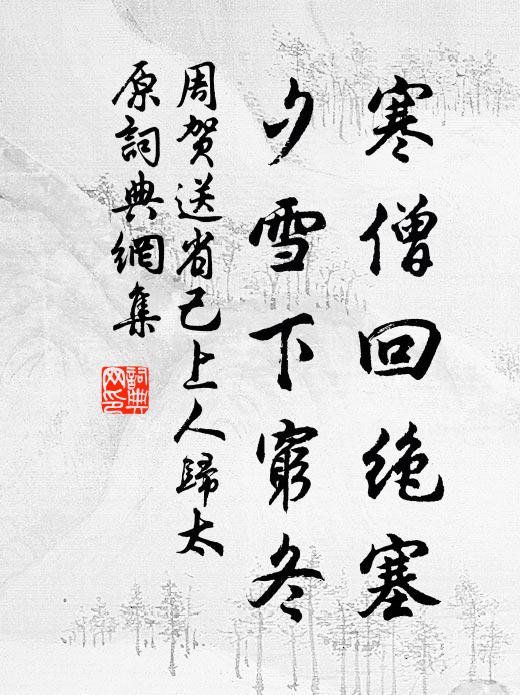 寒僧回绝塞
夕雪下窮冬
周贺送省己上人歸太
原詞典網集
詞典
网印